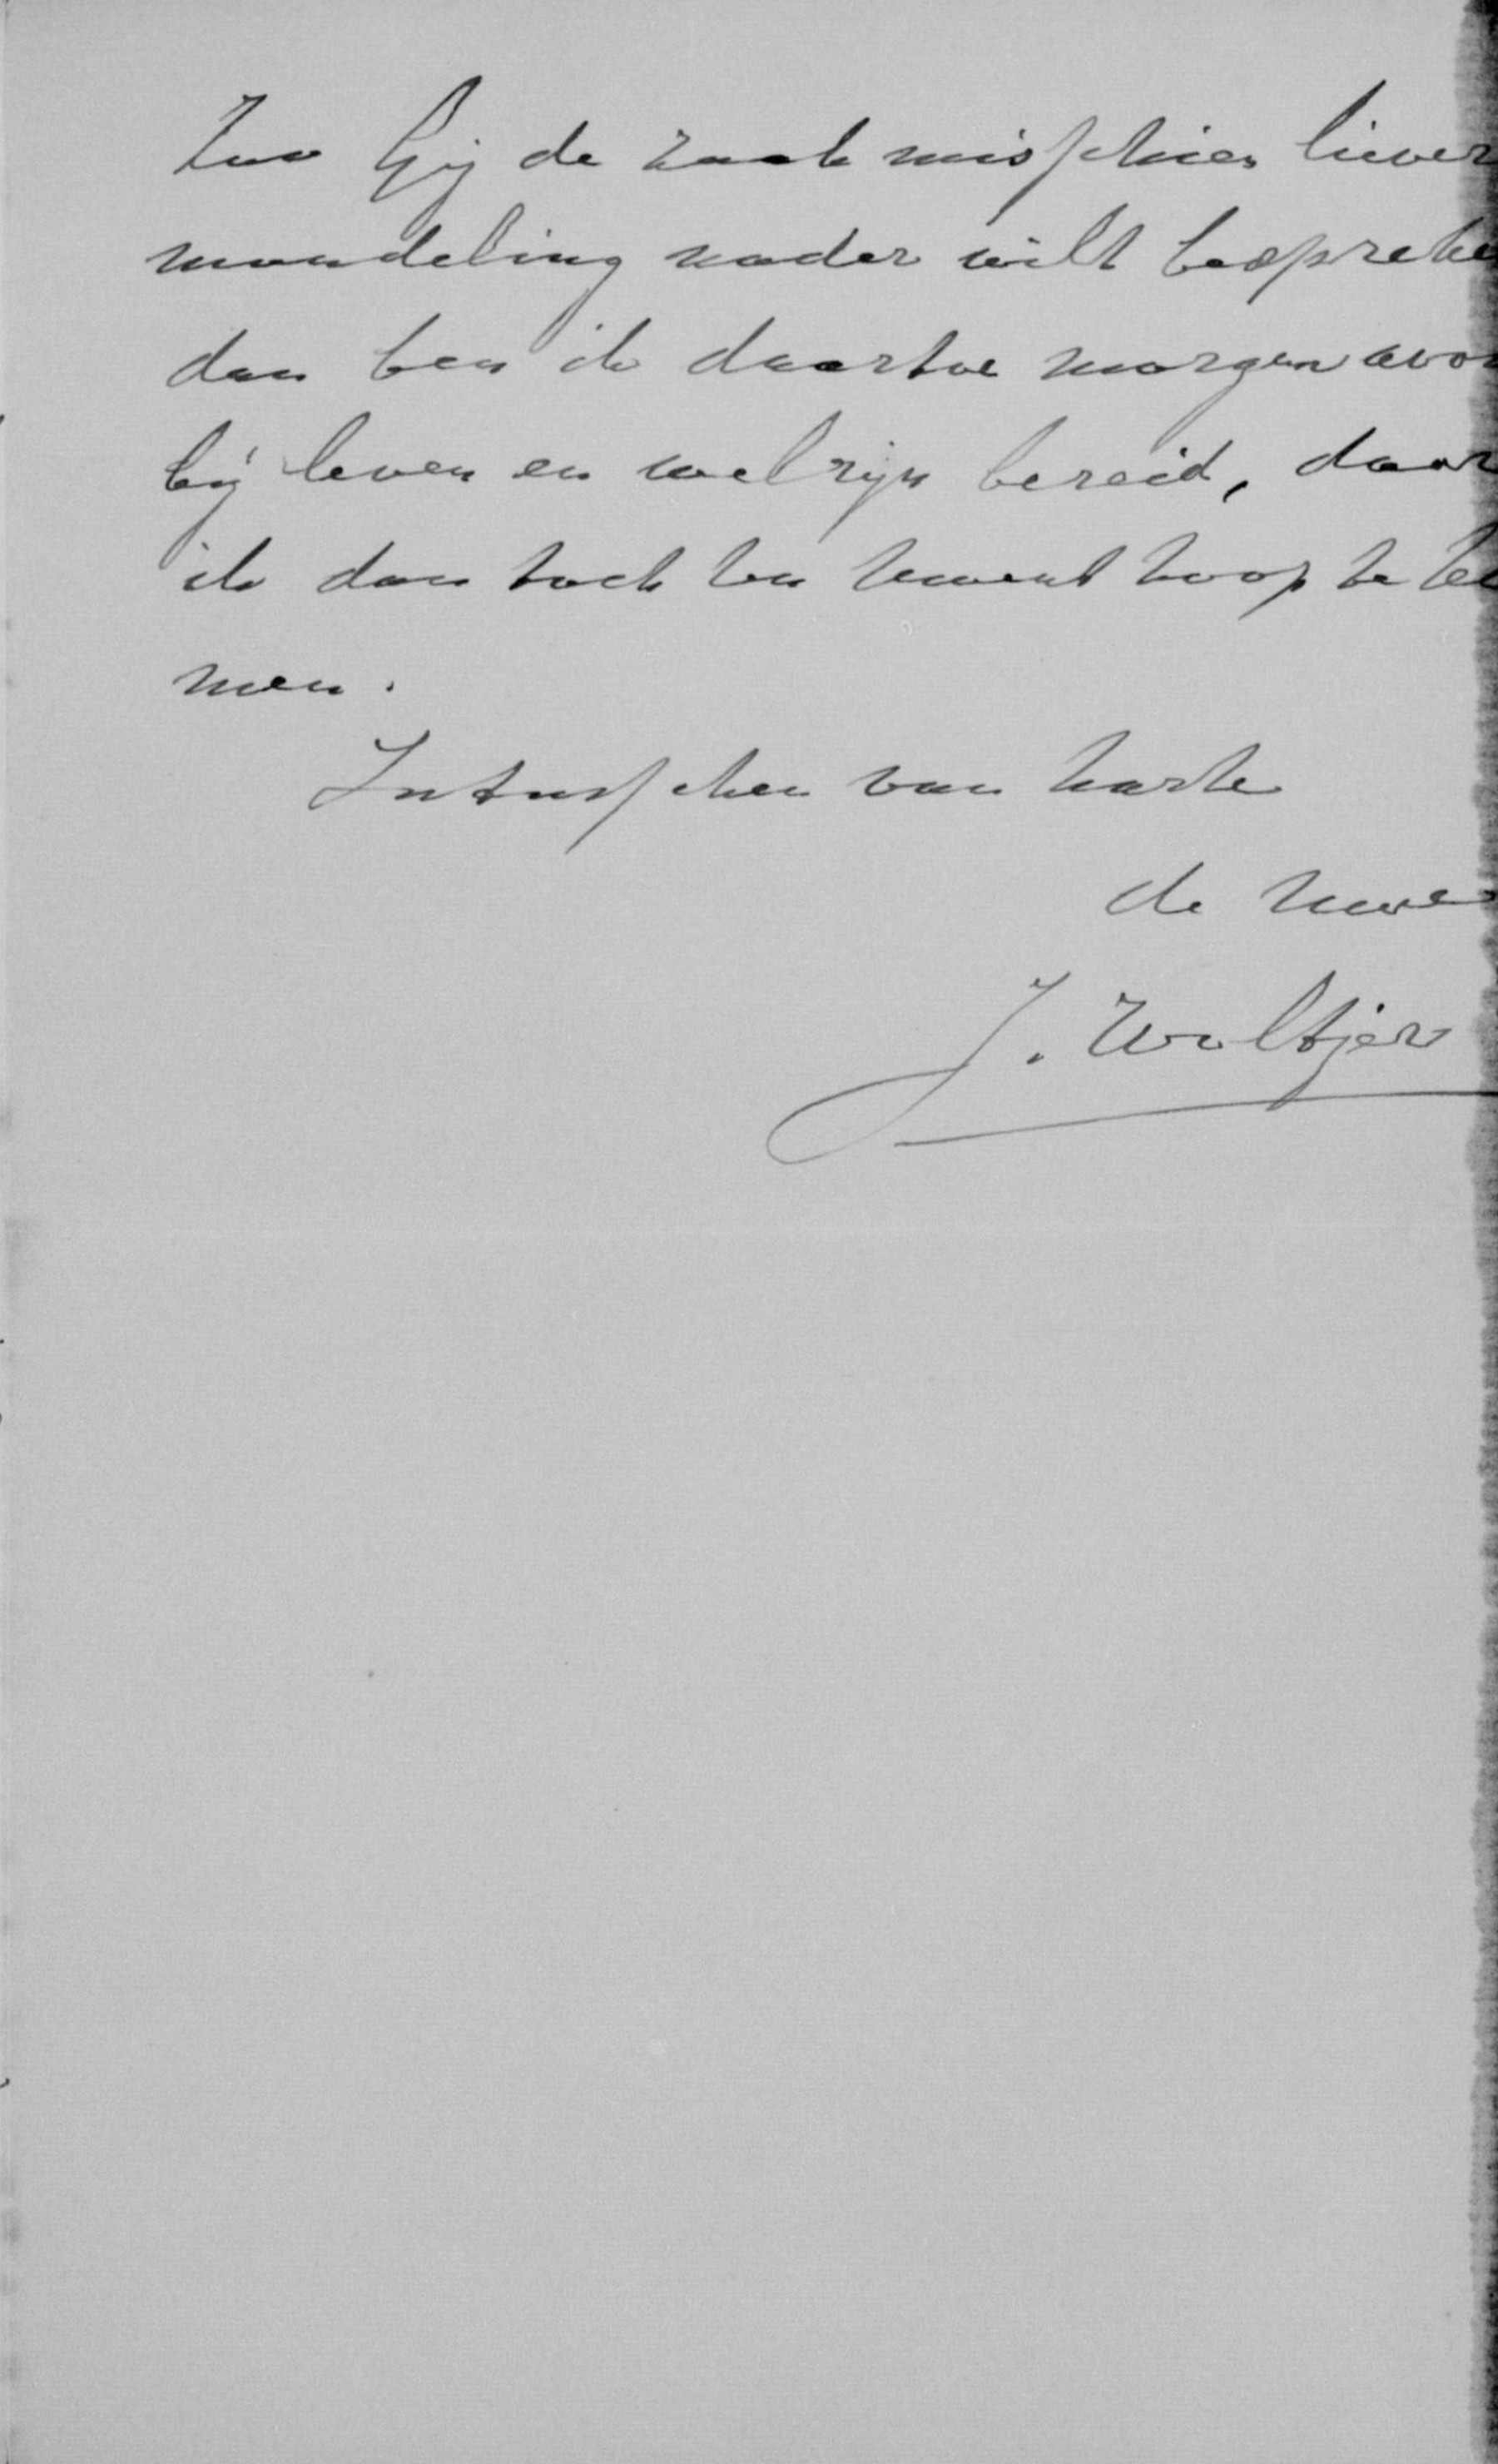 Zoo Gij de zaak misschien liever
mondeling nader wilt bespreke
dan ben ik daartoe morgen avon
bij leven en welzijn bereid, daar
ik dan toch ten Uwent hoop te ko
men.
Intusschen van harte
de Uwe
J. Woltjer